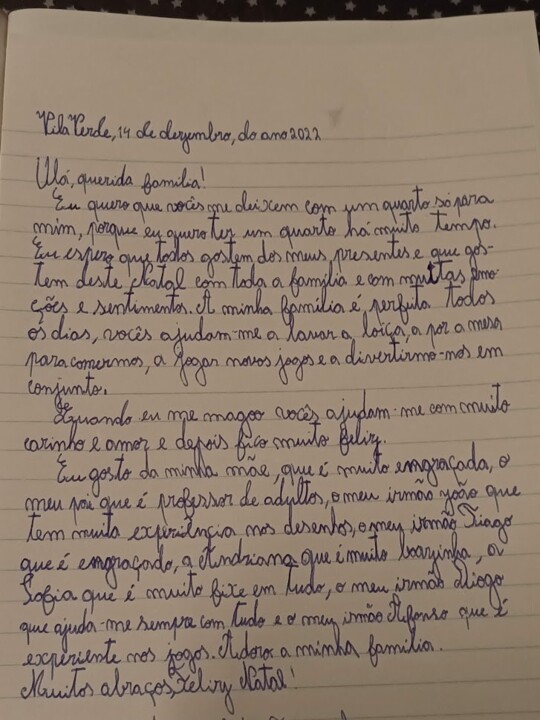 Vila Verde, 14 de dezembro, do ano 2022
Olá, querida família!
Eu quero que vocês me deixem com um quarto só para
mim, porque eu quero ter um quarto há muito tempo.
Eu espero que todos gostem dos meus presentes e que gos-
tem deste Natal com toda a família e com muitas emo-
ções e sentimentos. A minha família é perfeita. Todos
os dias, vocês ajudam-me a lavar a loiça, a por a mesa
para comermos, a jogar novos jogos e a divertirmo-nos em
conjunto.
Quando eu me magoo vocês ajudam-me com muito
carinho e amor e depois fico muito feliz.
Eu gosto da minha mãe, que é muito engraçada, o
meu pai que é professor de adultos, o meu irmão João que
tem muita experiência nos desenhos, o meu irmão Tiago
que é engraçado, a Andriana que é muito boazinha, a
Sofia que é muito fixe em tudo, o meu irmão Diogo
que ajuda-me sempre com tudo e o meu irmão Afonso que é
experiente nos jogos. Adoro a minha família.
Muitos abraços, Feliz Natal!